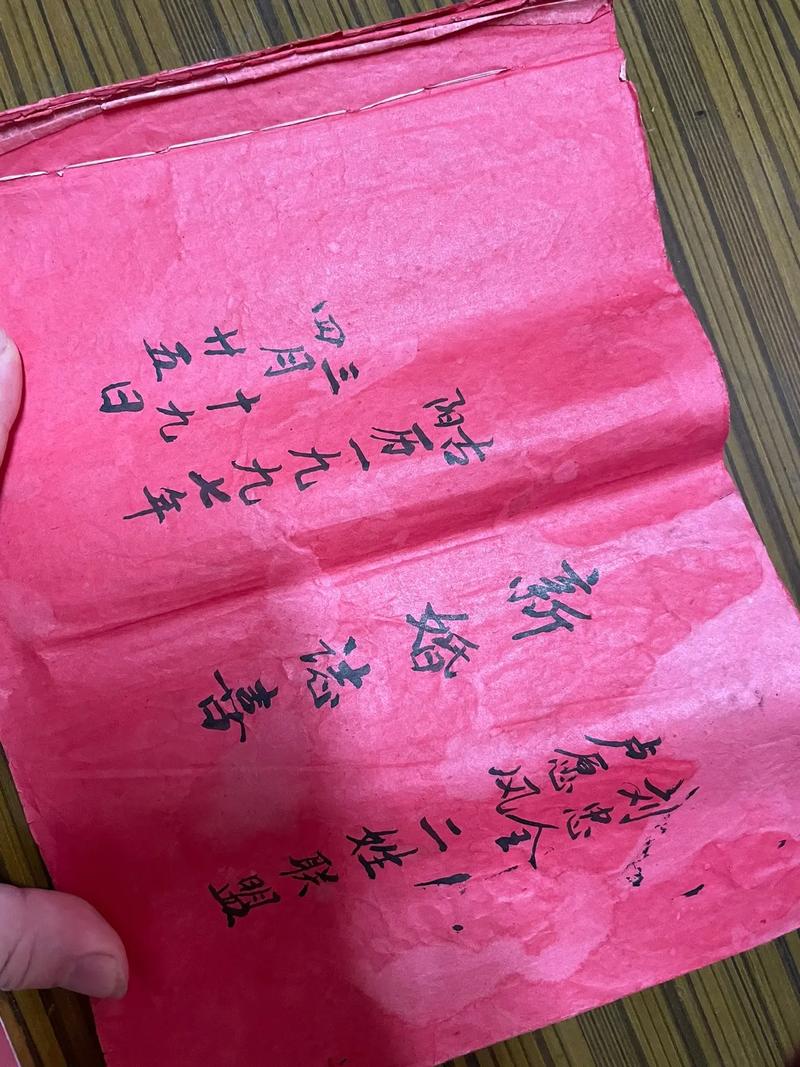 刘忠全
卢愿风
二姓联盟
新婚誌喜
古阳历一九九七年
三十九
四月廿五日